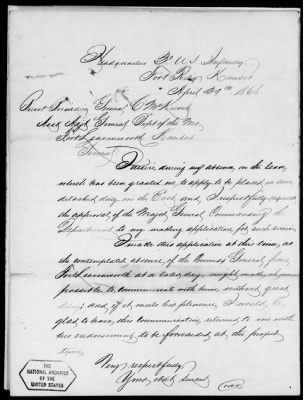 Headquarters 3d U.S. Infantry
Kansas
April 29th 1868
General
Asst Adjt General Dept of the Mo
Fort Leavenworth Kansas
General
I desire during my absence, on the leave
which has been granted me, to apply to be placed on some
detached duty in the East and I respectfully request
the approval, of the Major General Commanding the
Department to my making application for such service.
I make this application at this time, as
the contemplated absence of the General from
Fort Leavenworth at a early day, might make it
possible to communicate with him without great
delay; and, if it meets his pleasure, I would be
glad to have this communication returned to me with
his endorsement, to be forwarded at the proper
time.
Very respectfully
Your obdt servant
THE
NATIONAL ARCHIVES
OF THE
UNITED STATES